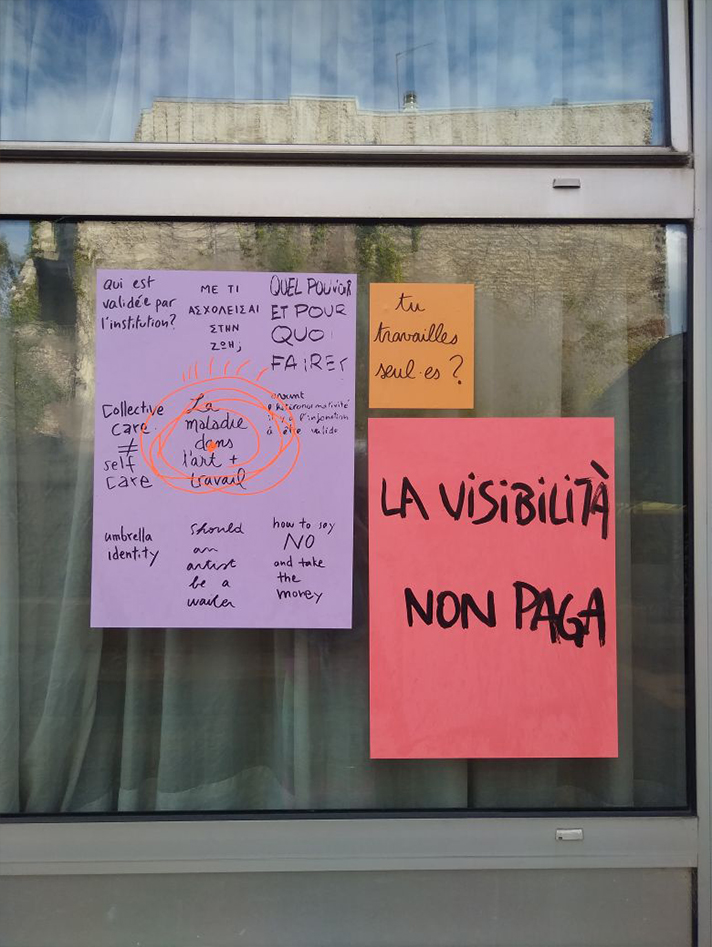 qui est
validé·e par
l'institution?
ΜΕ ΤΙ
ΑΣΧΟΛΕΙΣΑΙ
ΣΤΗΝ
ΖΩΗ;
QUEL POUVOIR
ET POUR
QUOI
FAIRE?
Collective
care
≠
self
care
La
maladie
dans
l'art +
travail
avant
l'hétéronormativité
il y a l'injonction
à être valide
umbrella
identity
should
an
artist
be a
waiter
how to say
NO
and take
the
money
tu
travailles
seul·es ?
LA VISIBILITÀ
NON PAGA